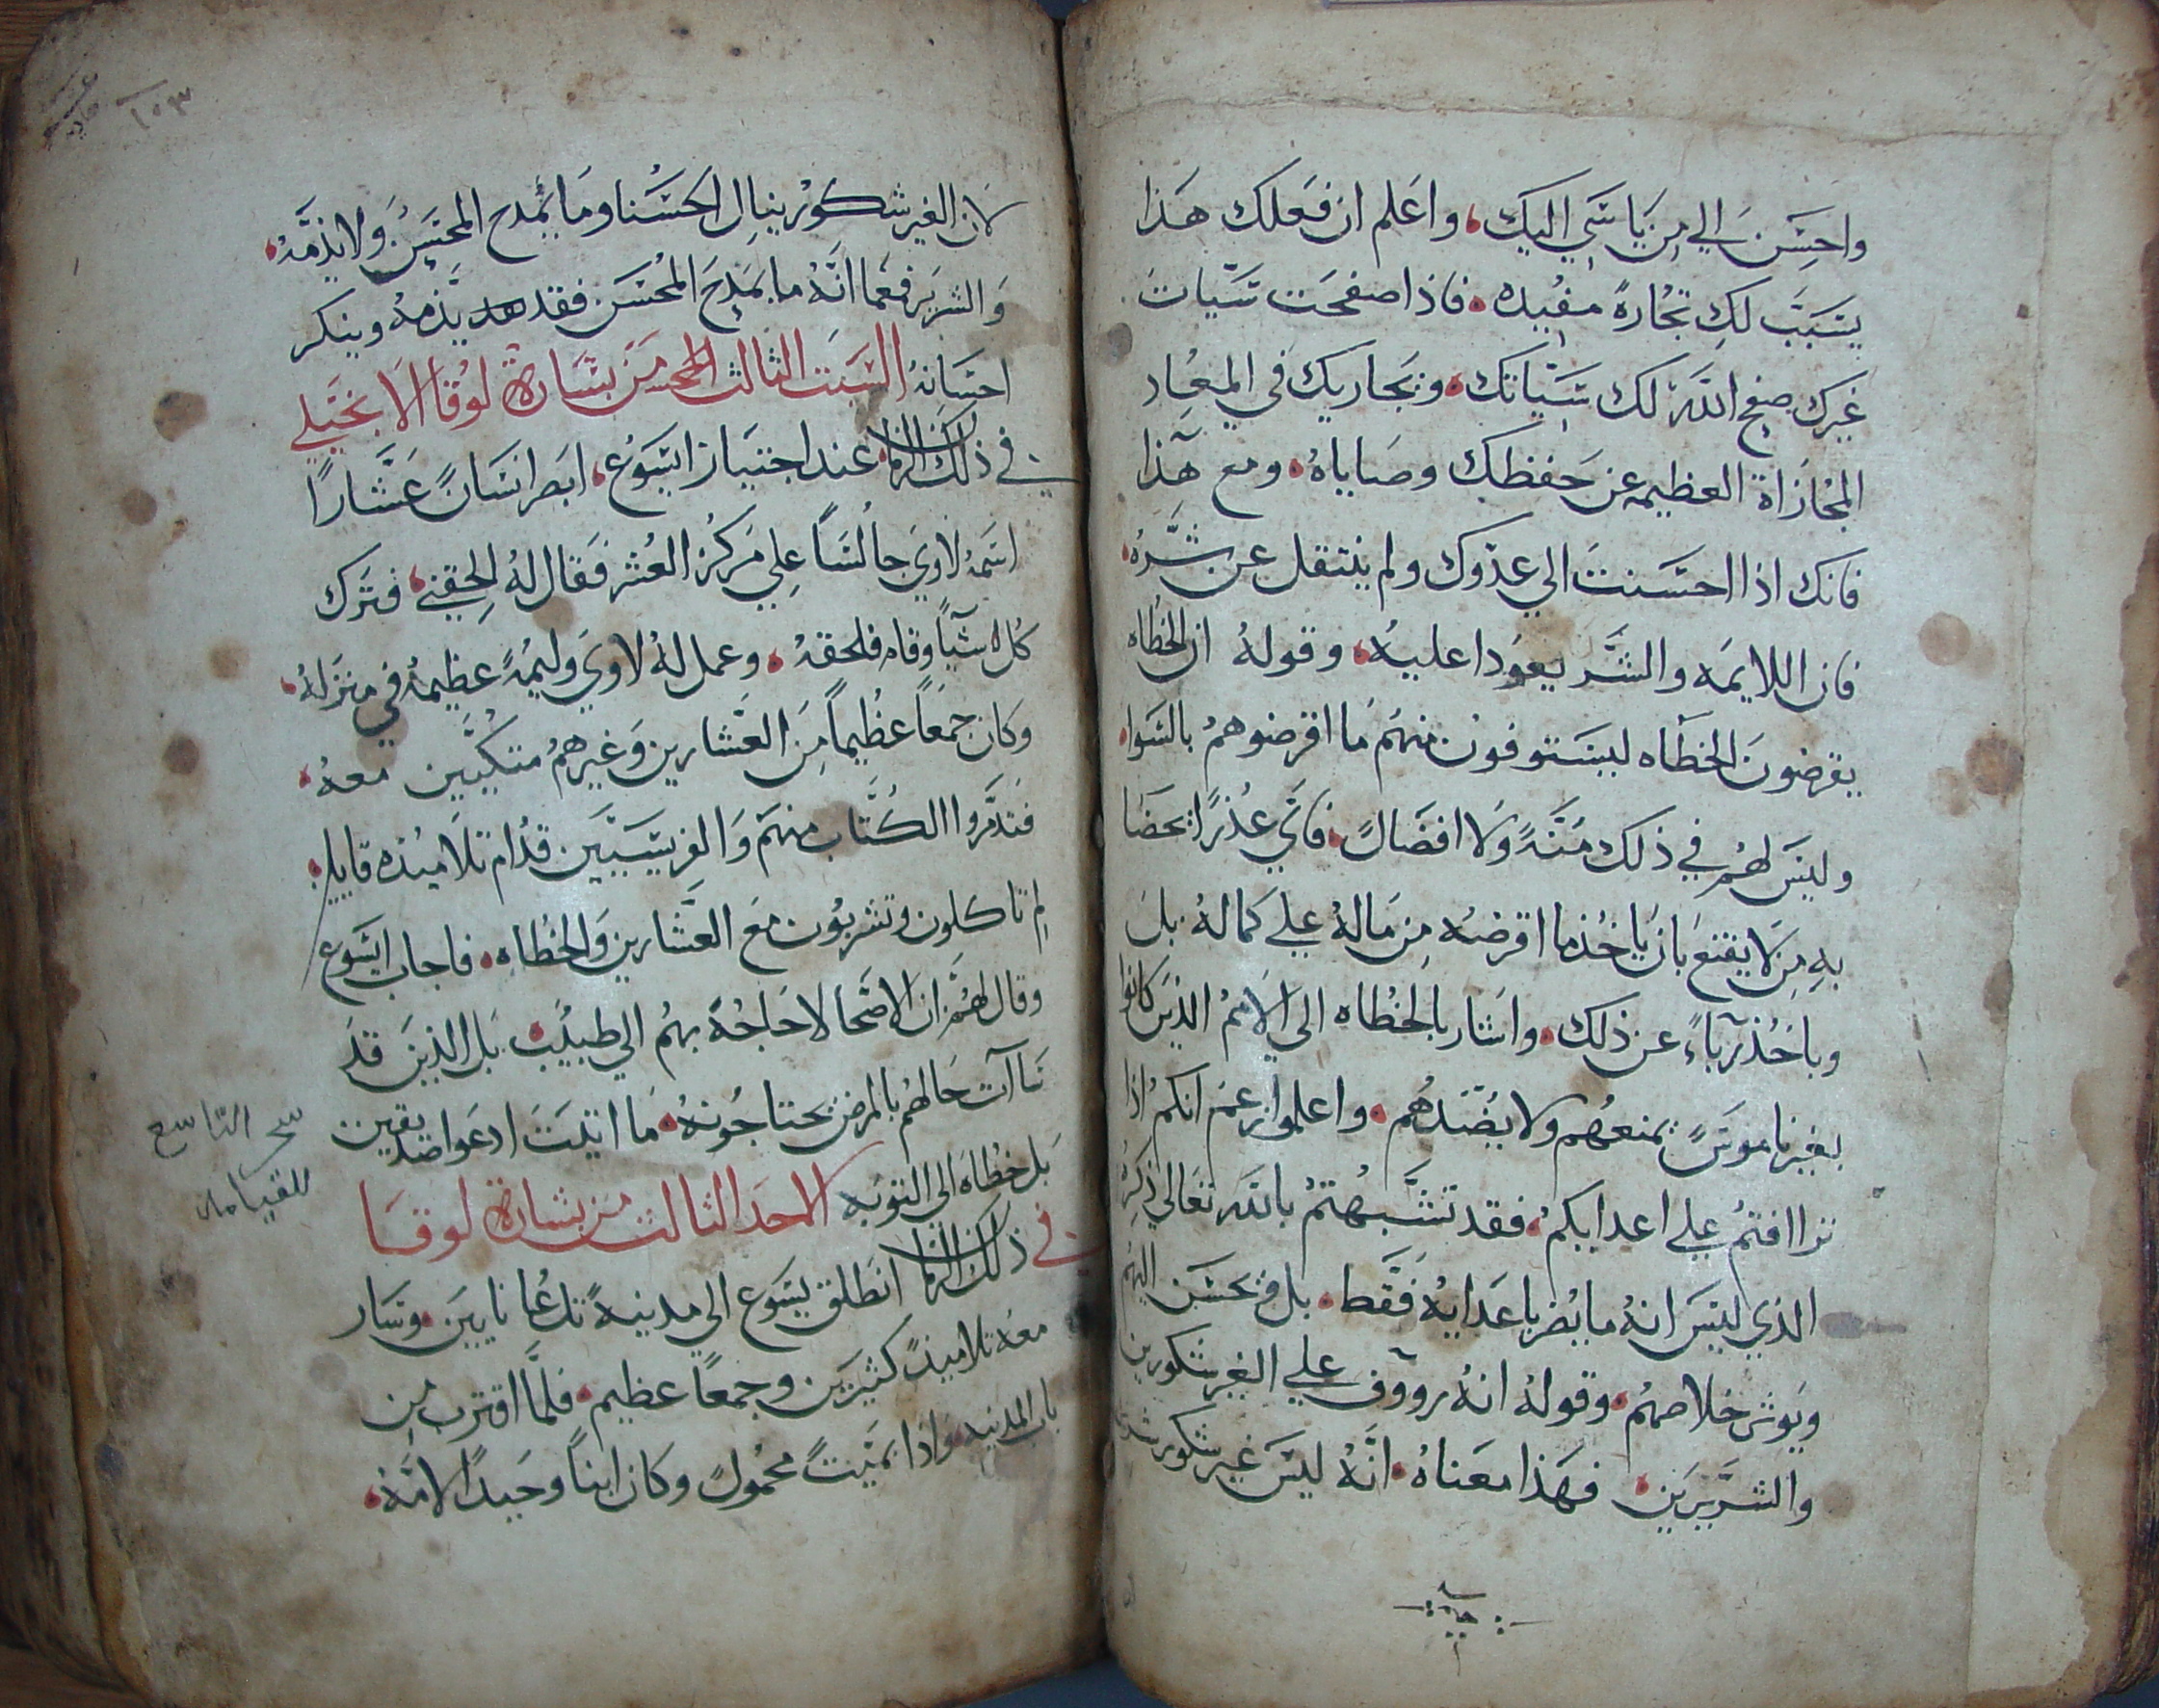 واحسن الي من ياسي اليك، واعلم ان فعلك هذا
يسبب لك تجاره مفيده، فاذا صفحت سيات
غيرك صفح الله لك سياتك، وتجاريك في الميعاد
المجازاة العظيمه عن حفظك وصاياه، ومع هذا
فانك اذا احسنت الي عدوك ولم ينتقل عن شره،
فان اللايمه والشر يعودا عليه، وقوله ان الخطاه
يقرضون الخطاه ليستوفون منهم ما اقرضوهم بالسوا،
وليس لهم في ذلك منة ولا افضال، فاي عذرا يحضا
به من لا يقنع بان ياخذ ما اقرضه من ماله علي كماله بل
وياخذ رباء عن ذلك، واشار بالخطاه الي الامم الذين كانوا
بغير ناموس يمنعهم ولا يصدهم، واعلموا زعم انكم اذا
تراافتم علي اعدايكم، فقد تشبهتم بالله تعالي ذكره
الذي ليس انه ما يضر باعدايه فقط، بل ويحسن اليهم
ويوثر خلاصهم، وقوله انه رووف علي الغير شكورين
والشريرين، فهذا معناه، انه ليس غير شكور شرير
١٠٣
لان الغير شكور ينال الحسنا وما يمدح المحسن ولا يذمه،
والشرير فعما انه ما يمدح المحسن فقد يذمه وينكر
احسانه السبت الثالث من بشارة لوقا الانجيلي
في ذلك الزمان عند اجتياز ايسوع، ابصر انسان عشارا
اسمه لاوي جالسا علي مركز العشر فقال له الحقني، فترك
كل شيا وقام فلحقه، وعمل له لاوي وليمة عظيمه في منزله،
وكان جمعا عظيما من العشارين وغيرهم متكيين معه،
فتدمروا الكتاب منهم والفريسيين قدام تلاميذه قايلين،
لم تاكلون وتشربون مع العشارين والخطاه، فاجاب ايسوع
وقال لهم ان الاصحا لا حاجة بهم الي طبيب، بل الذين قد
ساات حالهم بالمرض يحتاجونه، ما اتيت ادعوا صديقين
بل خطاه الي التوبه الاحد الثالث من بشارة لوقا
في ذلك الزمان انطلق يسوع الي مدينة تدعا نايين، وسار
معه تلاميذ كثيرين وجمعا عظيم، فلما اقترب من
باب المدينه واذا بميت محمول وكان ابنا وحيدا لامه،
سحر التاسع
للقيامه